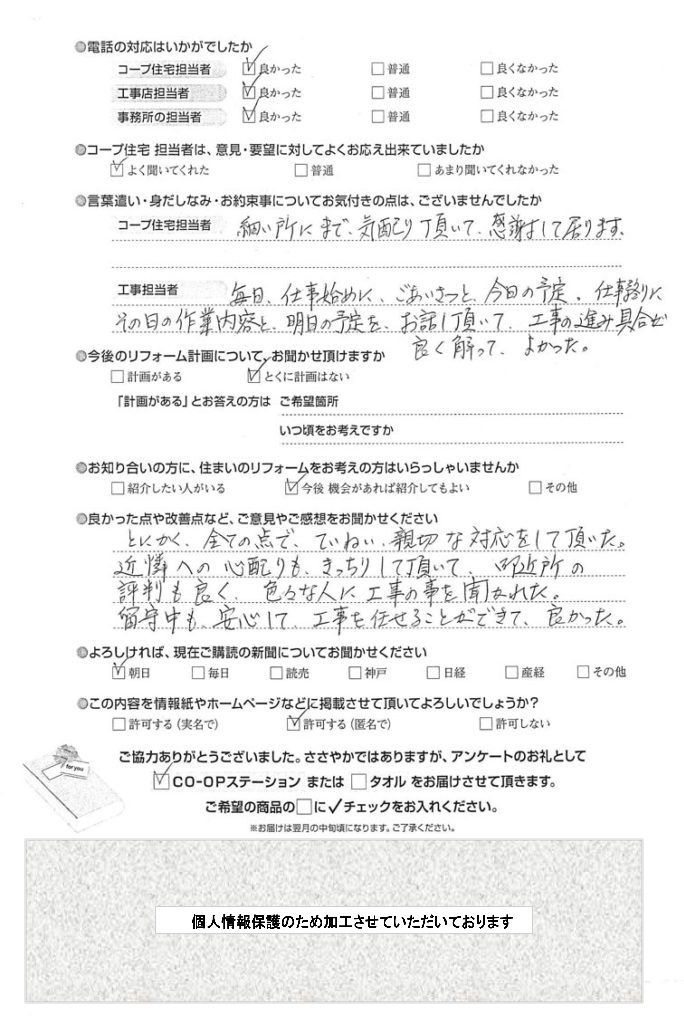 ●電話の対応はいかがでしたか
コープ住宅担当者 ☑良かった □普通 □良くなかった
工事店担当者 ☑良かった □普通 □良くなかった
事務所の担当者 ☑良かった □普通 □良くなかった
●コープ住宅 担当者は、意見・要望に対してよくお応え出来ていましたか
☑よく聞いてくれた □普通 □あまり聞いてくれなかった
●言葉遣い・身だしなみ・お約束事についてお気付きの点は、ございませんでしたか
コープ住宅担当者 細い所にまで、気配り頂いて、感謝して居ります。
工事担当者 毎日、仕事始めに、ごあいさつと、今日の予定。仕事終りに
その日の作業内容と、明日の予定を、お話し頂いて、工事の進み具合が
良く解って、よかった。
●今後のリフォーム計画について、お聞かせ頂けますか
□計画がある ☑とくに計画はない
「計画がある」とお答えの方は ご希望箇所
いつ頃をお考えですか
●お知り合いの方に、住まいのリフォームをお考えの方はいらっしゃいませんか
□紹介したい人がいる ☑今後 機会があれば紹介してもよい □その他
●良かった点や改善点など、ご意見やご感想をお聞かせください
とにかく、全ての点で、ていねい、親切な対応をして頂いた。
近隣への心配りも、きっちりして頂いて、御近所の
評判も良く、色々な人に工事の事を聞かれた。
留守中も、安心して、工事を任せることができて、良かった。
●よろしければ、現在ご購読の新聞についてお聞かせください
☑朝日 □毎日 □読売 □神戸 □日経 □産経 □その他
●この内容を情報紙やホームページなどに掲載させて頂いてよろしいでしょうか?
□許可する(実名で) ☑許可する(匿名で) □許可しない
for you
ご協力ありがとうございました。ささやかではありますが、アンケートのお礼として
☑CO-OPステーション または □タオル をお届けさせて頂きます。
ご希望の商品の□に✓チェックをお入れください。
※お届けは翌月の中旬頃になります。ご了承ください。
個人情報保護のため加工させていただいております